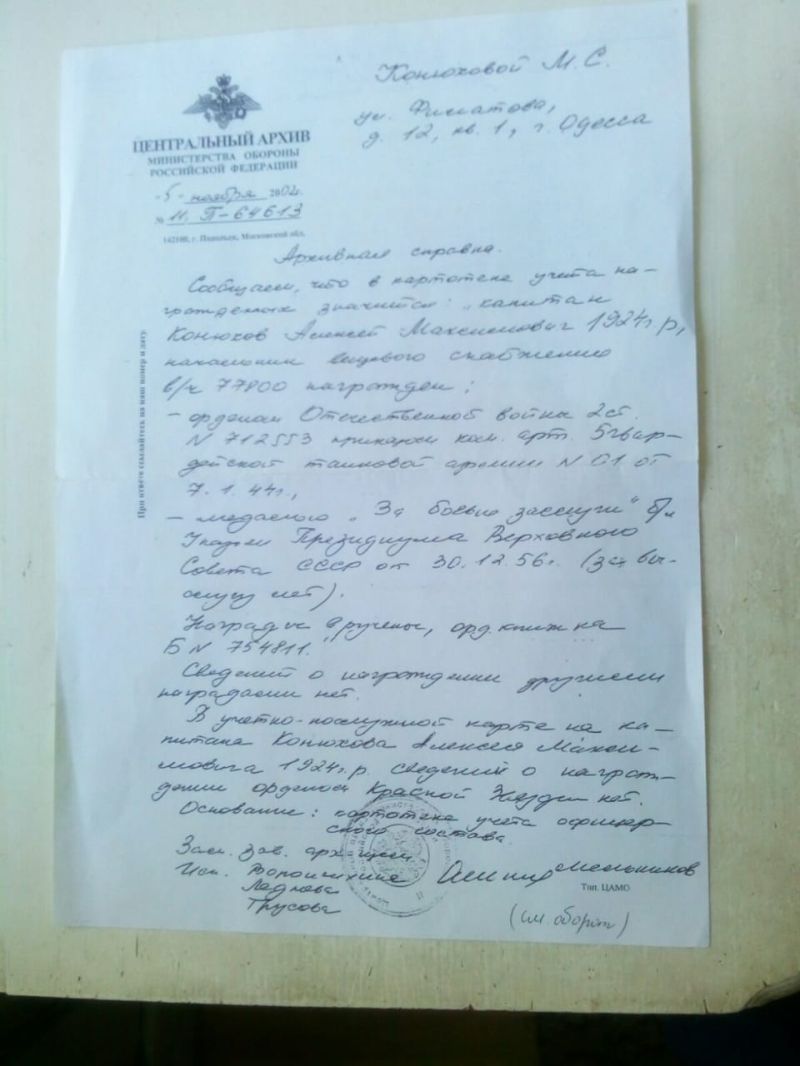 Конюховой М. С.
ул. Филатова,
д. 12, кв. 1, г. Одесса
ЦЕНТРАЛЬНЫЙ АРХИВ
МИНИСТЕРСТВА ОБОРОНЫ
РОССИЙСКОЙ ФЕДЕРАЦИИ
"5" ноября 2002г.
№ 11, П-64613
142100, г. Подольск, Московской обл.
При ответе ссылайтесь на наш номер и дату
Архивная справка.
Сообщаем, что в картотеке учета на-
гражденных значится: "капитан
Конюхов Алексей Максимович 1924г р,
начальник вещевого снабжения
в/ч 77800 награжден:
– орденом Отечественной войны 2ст.
N 712553 приказом ком. арт. 5гвар-
дейской танковой армии N 01 от
7. 1. 44г.,
– медалью "За боевые заслуги" б/n
Указом Президиума Верховного
Совета СССР от 30. 12. 56г. (за вы-
слугу лет).
Награды вручены, орд. книжка
Б N 754811."
Сведений о награждении другими
наградами нет.
В учетно-послужной карте на ка-
питана Конюхова Алексея Макси-
мовича 1924г. р. сведений о награж-
дении орденом Красной Звезды нет.
Основание: картотека учета офицер-
ского состава.
Зам. зав. архивом
Мельников
Исп.
Леднева
Трусова
Тип. ЦАМО
(см. оборот)